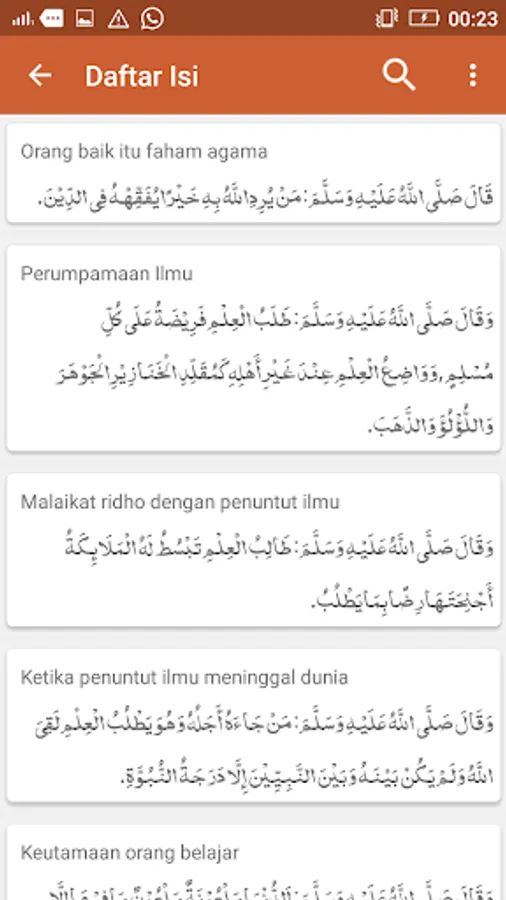 00:23
Daftar Isi
Orang baik itu faham agama
قَالَ صَلَّى اللَّهُ عَلَيْهِ وَسَلَّمَ: مَنْ يُرِدِ اللَّهُ بِهِ خَيْرًا يُفَقِّهْهُ فِى الدِّيْنَ.
Perumpamaan Ilmu
وَقَالَ صَلَّى اللَّهُ عَلَيْهِ وَسَلَّمَ: طَلَبُ الْعِلْمِ فَرِيْضَةٌ عَلَى كُلِّ
مُسْلِمٍ, وَوَاضِعُ الْعِلْمِ عِنْدَ غَيْرِ أَهْلِهِ كَمُقَلِّدِ الْخَنَازِيْرِ الْجَوْهَرَ
وَاللُّؤْلُؤَ وَالذَّهَبَ.
Malaikat ridho dengan penuntut ilmu
وَقَالَ صَلَّى اللَّهُ عَلَيْهِ وَسَلَّمَ: طَالِبُ الْعِلْمِ تَبْسُطُ لَهُ الْمَلَائِكَةُ
أَجْنِحَتَهَا رِضًا بِمَا يَطْلُبُ.
Ketika penuntut ilmu meninggal dunia
وَقَالَ صَلَّى اللَّهُ عَلَيْهِ وَسَلَّمَ: مَنْ جَاءَهُ أَجَلُهُ وَهُوَ يَطْلُبُ الْعِلْمَ لَقِيَ
اللَّهُ وَلَمْ يَكُنْ بَيْنَهُ وَبَيْنَ النَّبِيِّيْنَ إِلَّا دَرَجَةُ النُّبُوَّةِ.
Keutamaan orang belajar
وَقَالَ صَلَّى اللَّهُ عَلَيْهِ وَسَلَّمَ: اَلدُّنْيَا مَلْعُوْنَةٌ مَلْعُوْنٌ مَا فِيْهَا إِلَّا